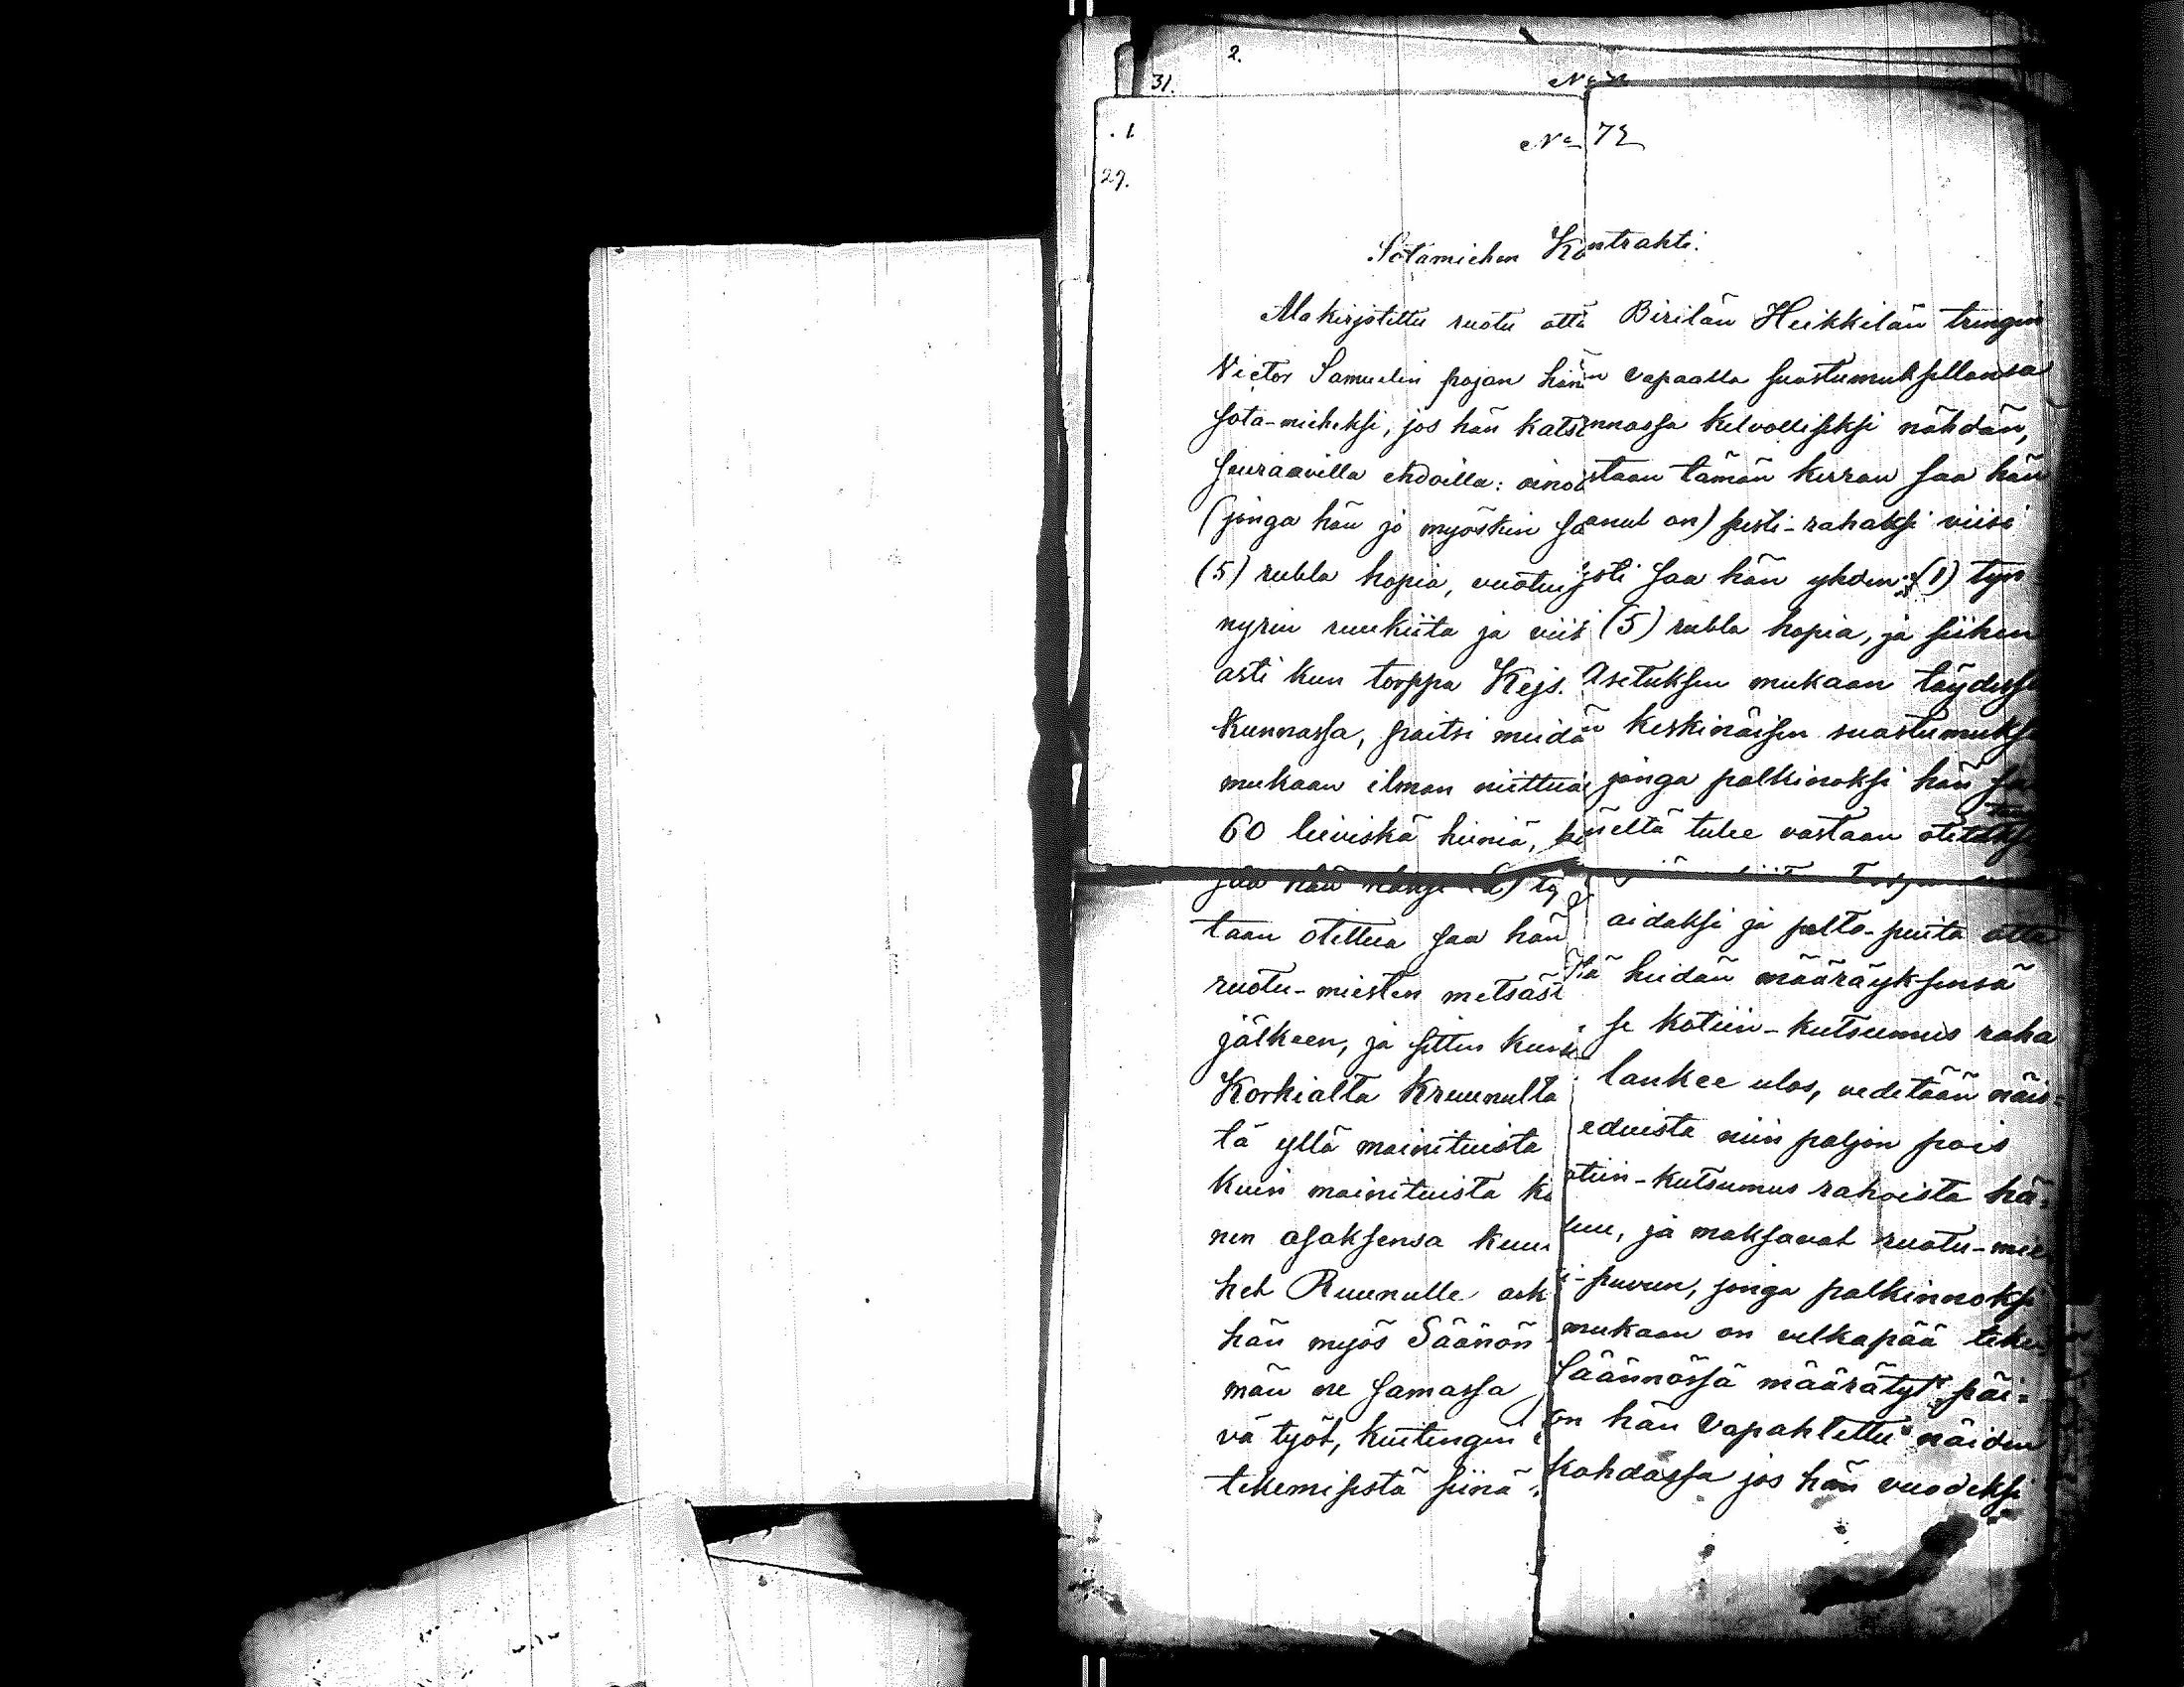 2.
31.
. 1.
29.
No 72
Sotamiehen Kontrahti.
Alakirjotettu ruotu otti Birilän Heikkilän trengin
Victor Samuelin pojan hänen vapaalla suostumuksellansa
sota-mieheksi, jos hän katsannossa kelvolliseksi nähdän,
seuraavilla ehdoilla: ainoastaan tämän kerran saa hän
(jonga hän jo myöskin saanut on) pesti-rahaksi viisi
(5) rubla hopia, vuotuisesti saa hän yhden (1) tyn
nyrin ruukiita ja viisi (5) rubla hopia, ja siihen
asti kun torppa Kejs. Asetuksen mukaan täydessä
kunnassa, paitsi meidän keskinäisen suostumuksen
mukaan ilman niittua jonga palkinoksi hän saa
60 leiviskä heiniä, tulee vastaan otetuksi
saa hän
taan otettua saa hän aidaksi ja polto-puita otta
ruotu-miesten metsästä heidän määräyksensä
jälkeen, ja sittus kuin se kotiin-kutsumus raha
Korkialta Kruunulta lankee ulos, vedetään näis-
tä yllä mainituista eduista niin paljon pois
kuin mainituista kotiin-kutsumus rahoista hä-
nen osaksensa kuuluu, ja maksavat ruotu-mie
het Ruunulle puvun, jonga palkinnoksi
hän myös Säänön mukaan on velkapää teke
män ne samassa Säännössä määrätyt päi-
vä työt, kuitengin on hän vapahtettu näiden
tekemisestä siinä kohdassa jos hän vuodeksi